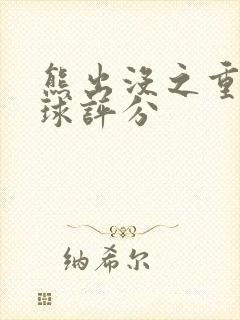 熊出没之重
球评分
纳希尔